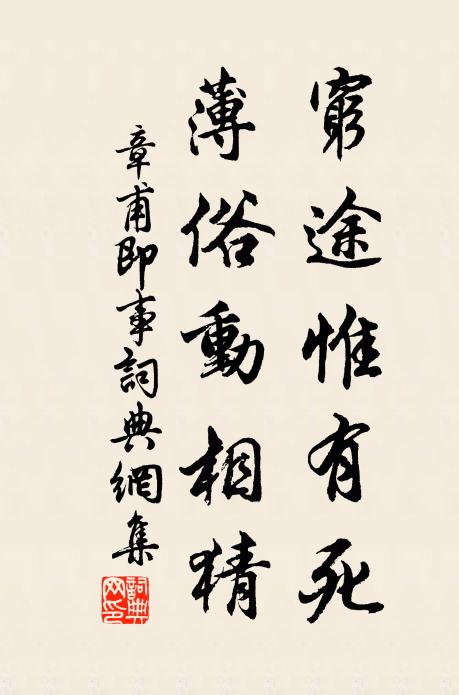 窮途惟有死
薄俗動相猜
章甫即事詞典網集
詞典網印